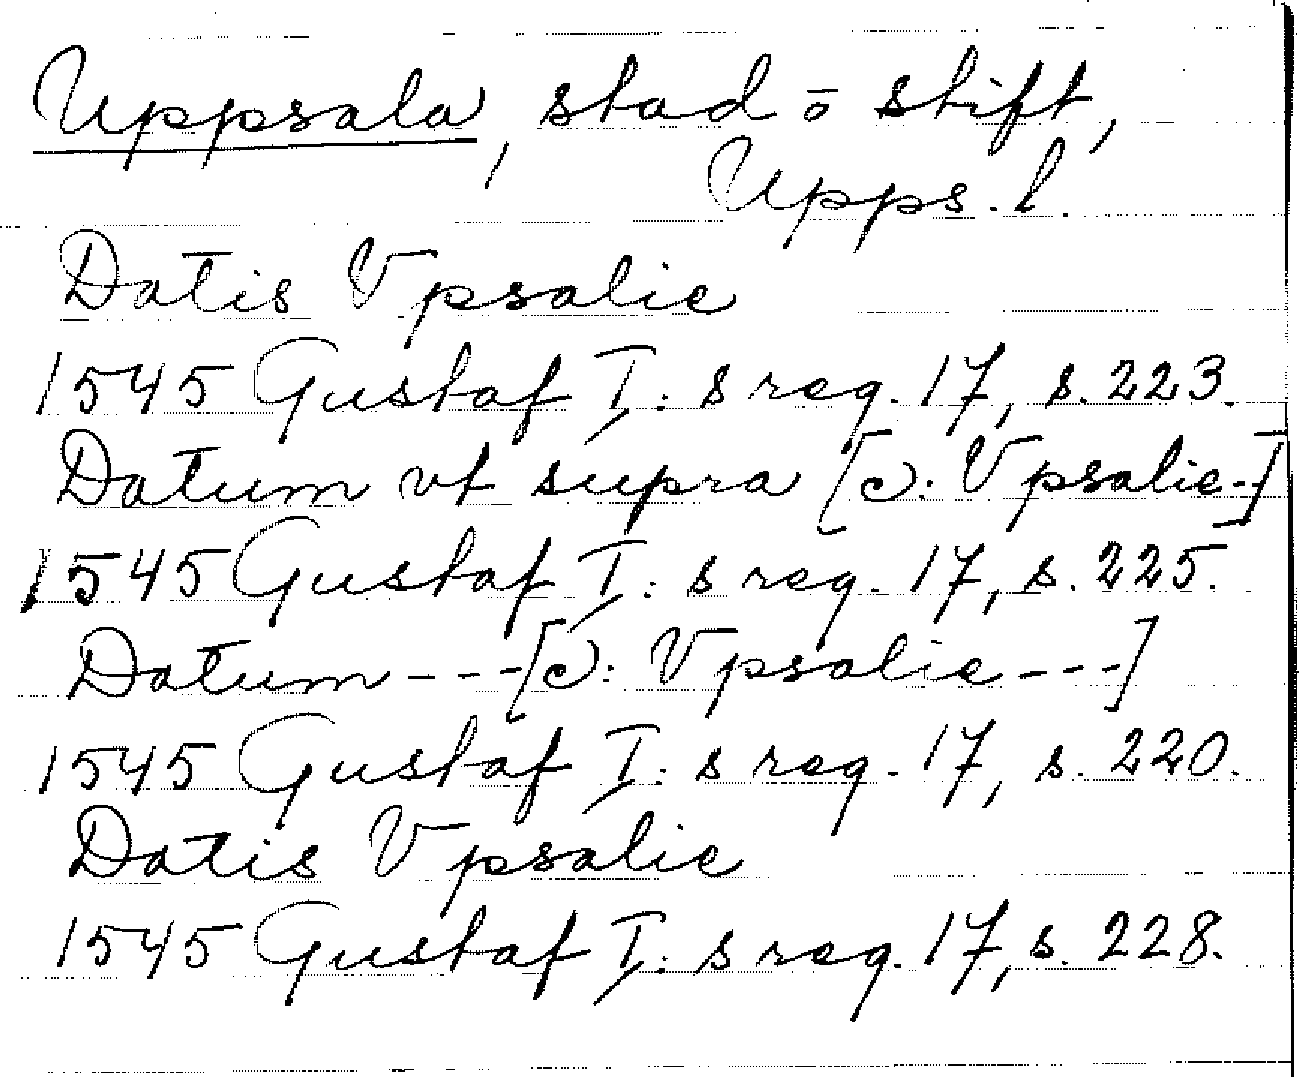 Uppsala, stad o stift,
Upps. l.
Datis Vpsalie
1545 Gustaf I:s reg. 17, s. 223.
Datum vt supra [ɔ: Vpsalie-]
1545 Gustaf I:s reg. 17, s. 225.
Datum---[ɔ: Vpsalie---]
1545 Gustaf I:s reg. 17, s. 220.
Datis Vpsalie
1545 Gustaf I:s reg. 17, s. 228.